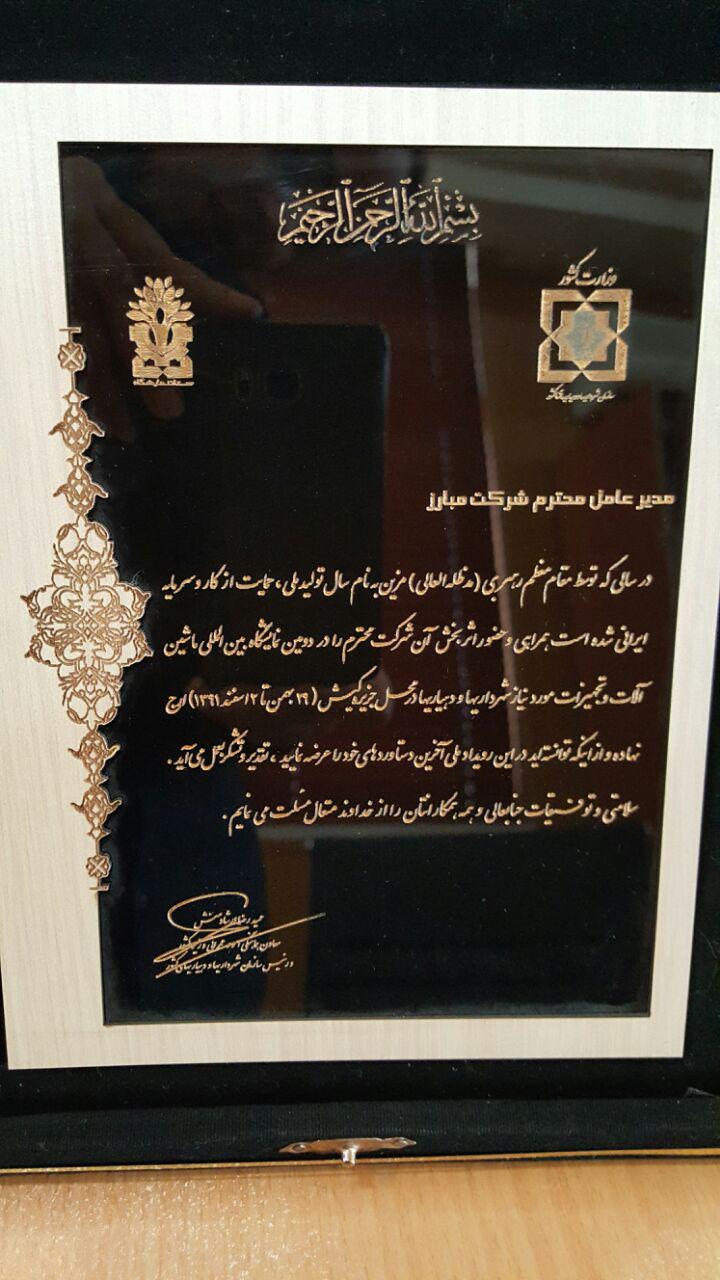 بسم الله الرحمن الرحیم
وزارت کشور
سازمان شهرداریها و دهیاریهای کشور
مدیر عامل محترم شرکت مبارز
در سالی که توسط مقام معظم رهبری (مدظله العالی) مزین به نام سال تولید ملی ، حمایت از کار و سرمایه
ایرانی شده است همراهی و حضور اثربخش آن شرکت محترم را در دومین نمایشگاه بین المللی ماشین
آلات و تجهیزات مورد نیاز شهرداریها و دهیاریها در محل جزیره کیش ( ۲۹ بهمن تا ۲ اسفند ۱۳۹۱) ارج
نهاده و از اینکه توانسته اید در این رویداد ملی آخرین دستاوردهای خود را عرضه نمایید ، تقدیر و تشکر بعمل می آید .
سلامتی و توفیقات جنابعالی و همه همکارانتان را از خداوند متعال مسئلت می نمایم .
حمیدرضا ارشادمنش
معاون هماهنگی امور عمرانی وزیر کشور
و رئیس سازمان شهرداریها و دهیاریهای کشور